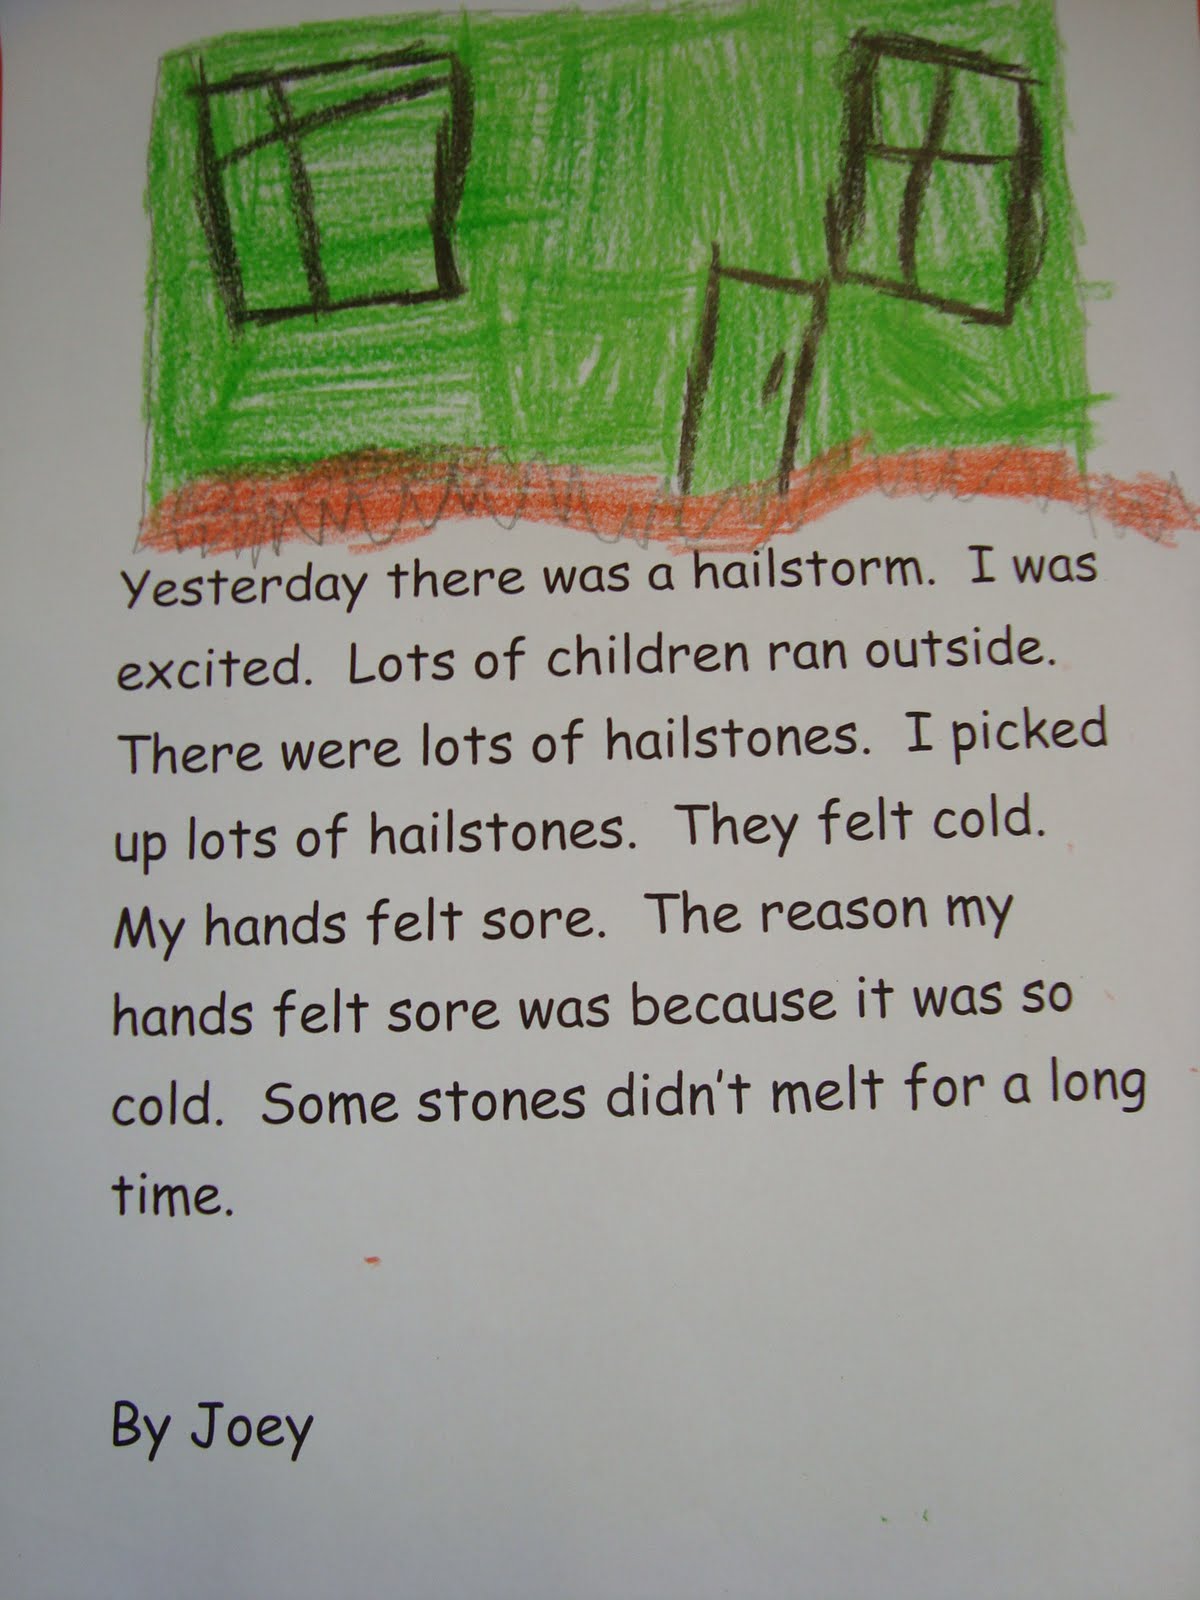 Yesterday there was a hailstorm.  I was
excited.  Lots of children ran outside.
There were lots of hailstones.  I picked
up lots of hailstones.  They felt cold.
My hands felt sore.  The reason my
hands felt sore was because it was so
cold.  Some stones didn't melt for a long
time.
By Joey